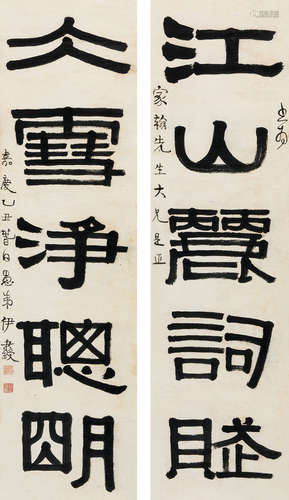 江山麗詞賦
家翰先生大兄是正
仌雪淨聰朙
嘉慶乙丑暑日愚弟伊秉綬